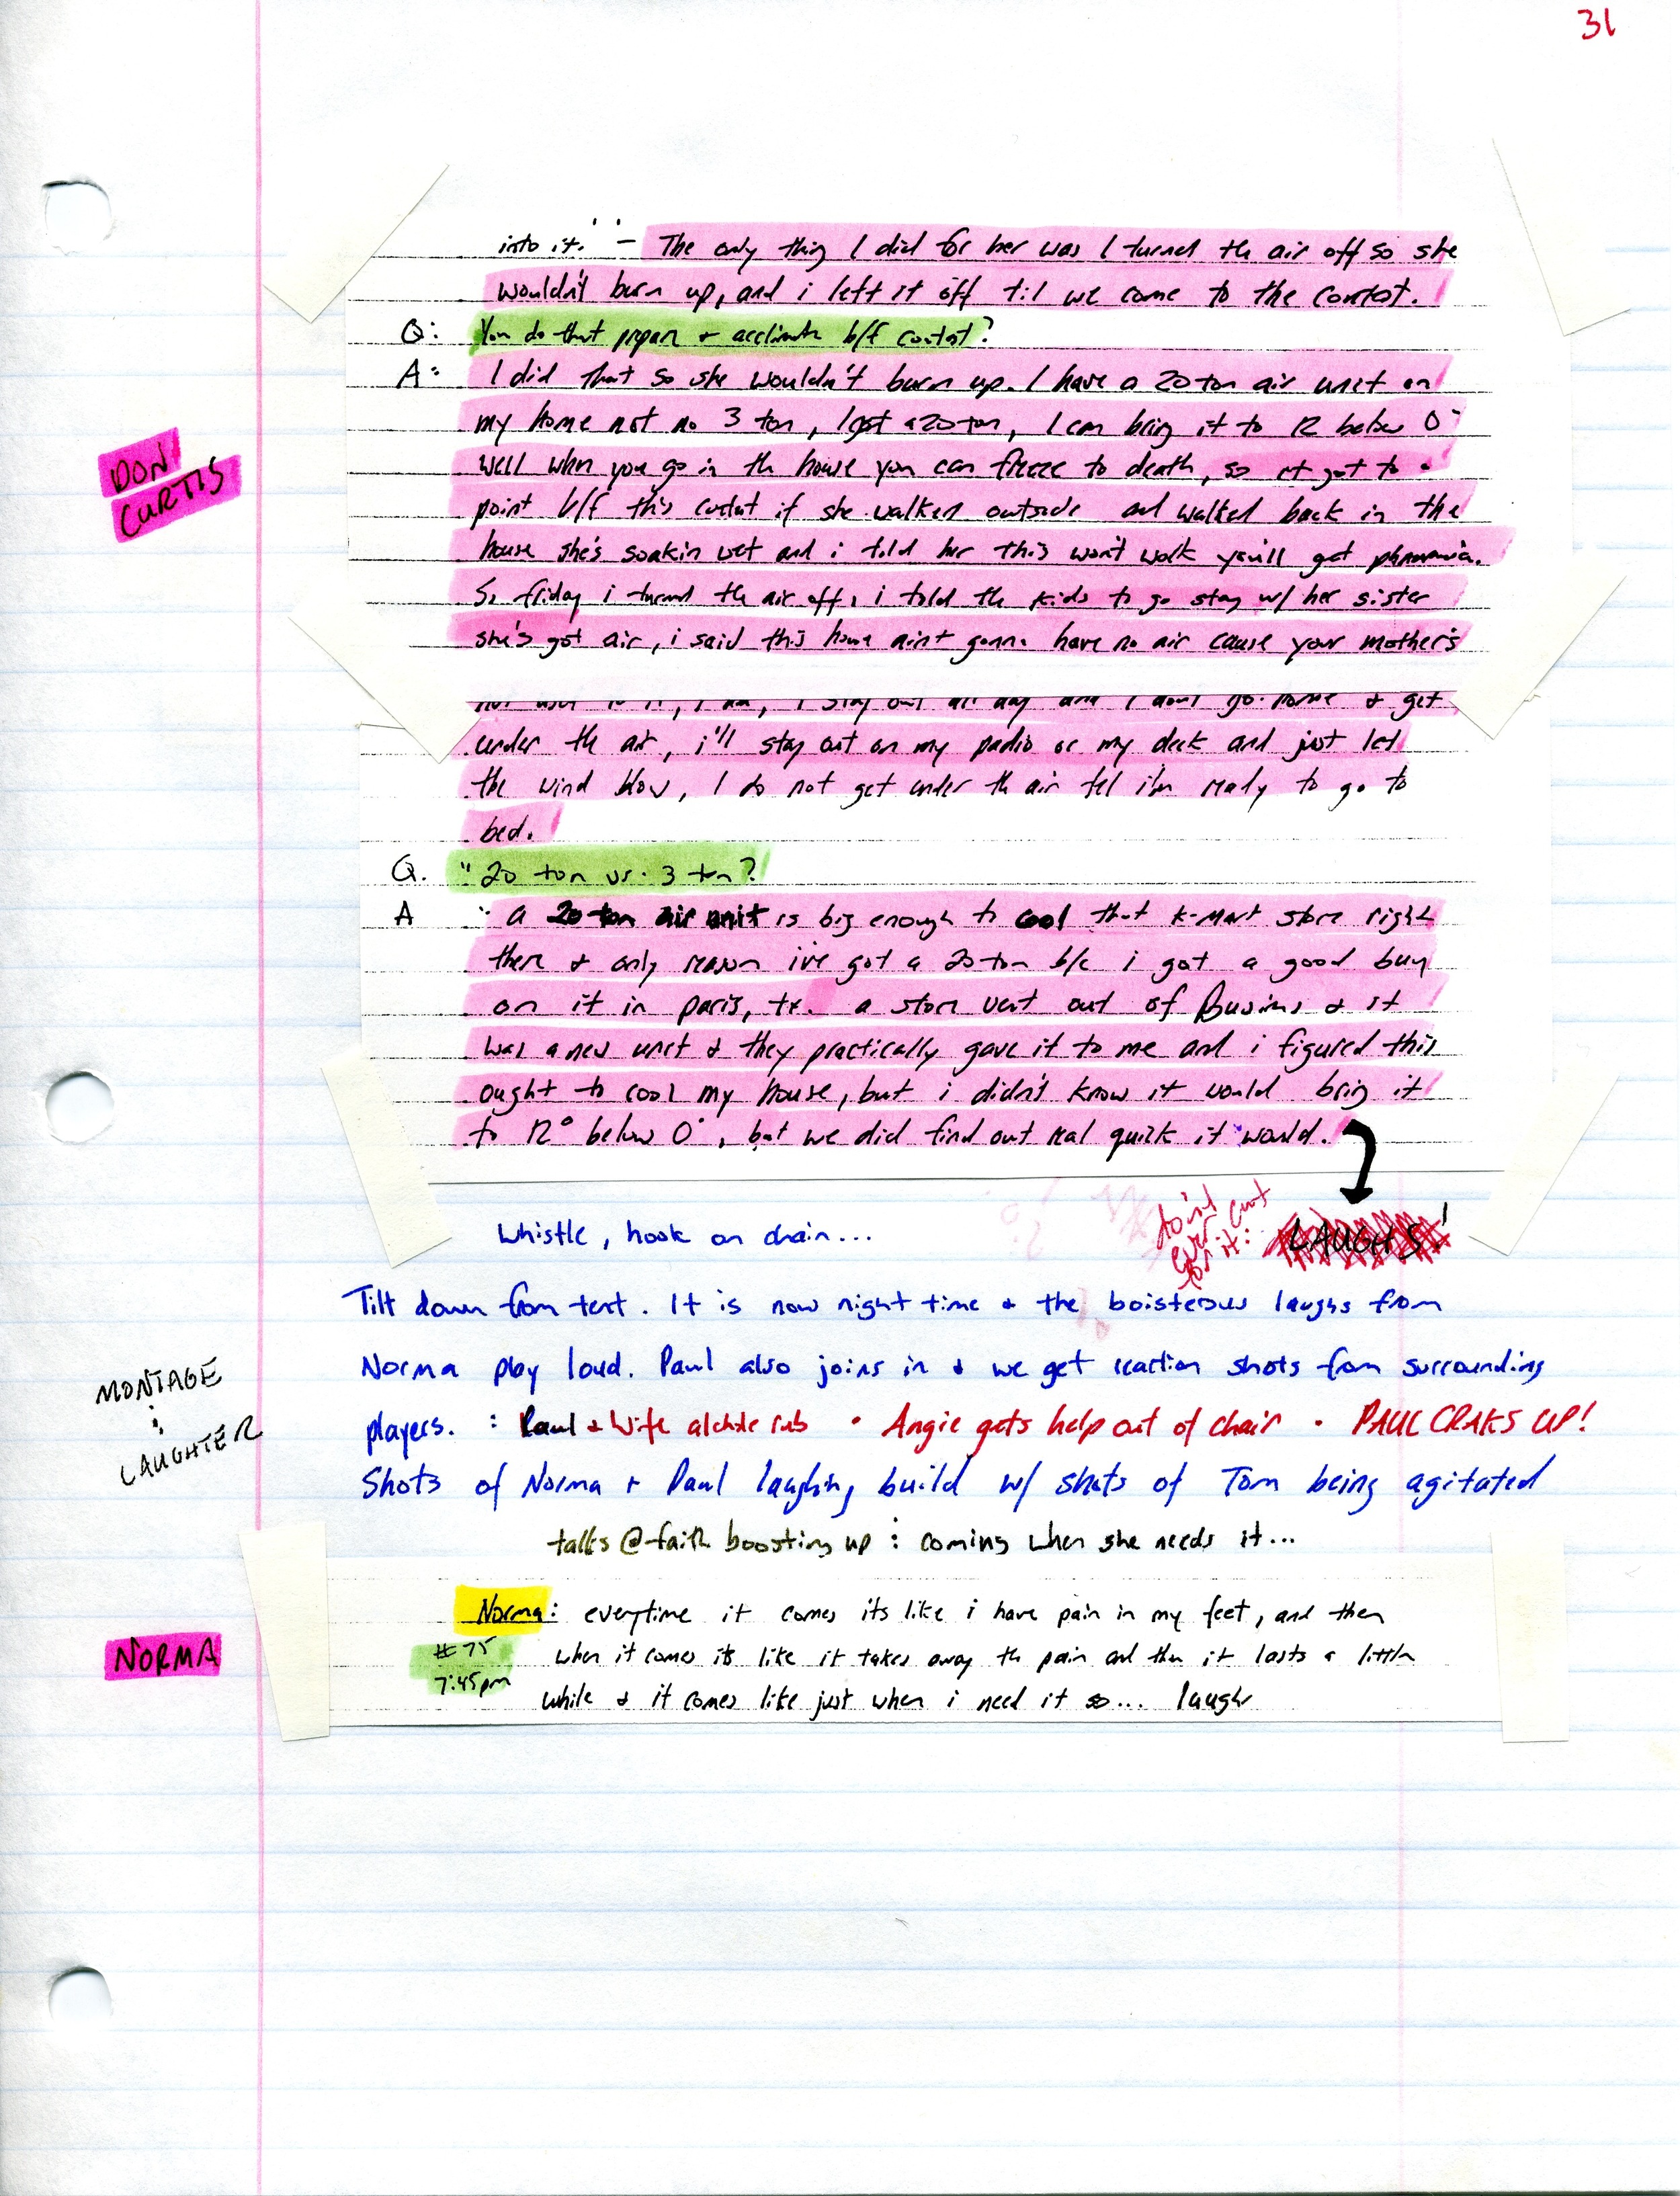 31
into it." - The only thing I did for her was I turned th air off so she
wouldn't burn up, and i left it off til we come to the contest.
Q: You do that prepare + acclimate b/f contest?
DON
CURTIS
A: I did that so she wouldn't burn up. I have a 20 ton air unit on
my home not no 3 ton, I got a 20 ton, I can bring it to 12 below 0°
well when you go in th house you can freeze to death, so it got to a
point b/f this contest if she walked outside and walked back in the
house she's soakin wet and i told her this won't work you'll get
So friday i turned th air off, i told th kids to go stay w/ her sister
she's got air, i said this home aint gonna have no air cause your mother's
not used to it, I am, I stay out all day and I don't go home & get
under th air, i'll stay out on my padio or my deck and just let
the wind blow, I do not get under th air tel i'm ready to go to
bed.
Q. "20 ton vs. 3 ton?
A : a 20 ton air unit is big enough to cool that K-Mart store right
there & only reason i've got a 20 ton b/c i got a good buy
on it in paris, tx. a store went out of Business & it
was a new unit & they practically gave it to me and i figured this
ought to cool my house, but i didn't know it would bring it
to 12° below 0°, but we did find out real quick it would.
Whistle, hook on chain...
LAUGHS!
Tilt down from tent. It is now night time & the boisterous laughs from
Norma play loud. Paul also joins in & we get reaction shots from surrounding
MONTAGE
:
LAUGHTER
players. : Paul & Wife rub • Angie gets help out of chair • PAUL CRAKS UP!
Shots of Norma + Paul laughing build w/ shots of Tom being agitated
talks @ faith boosting up : coming when she needs it...
NORMA
Norma: everytime it comes its like i have pain in my feet, and then
#75
when it comes its like it takes away th pain and then it lasts a little
7:45pm
while & it comes like just when i need it so... laugh